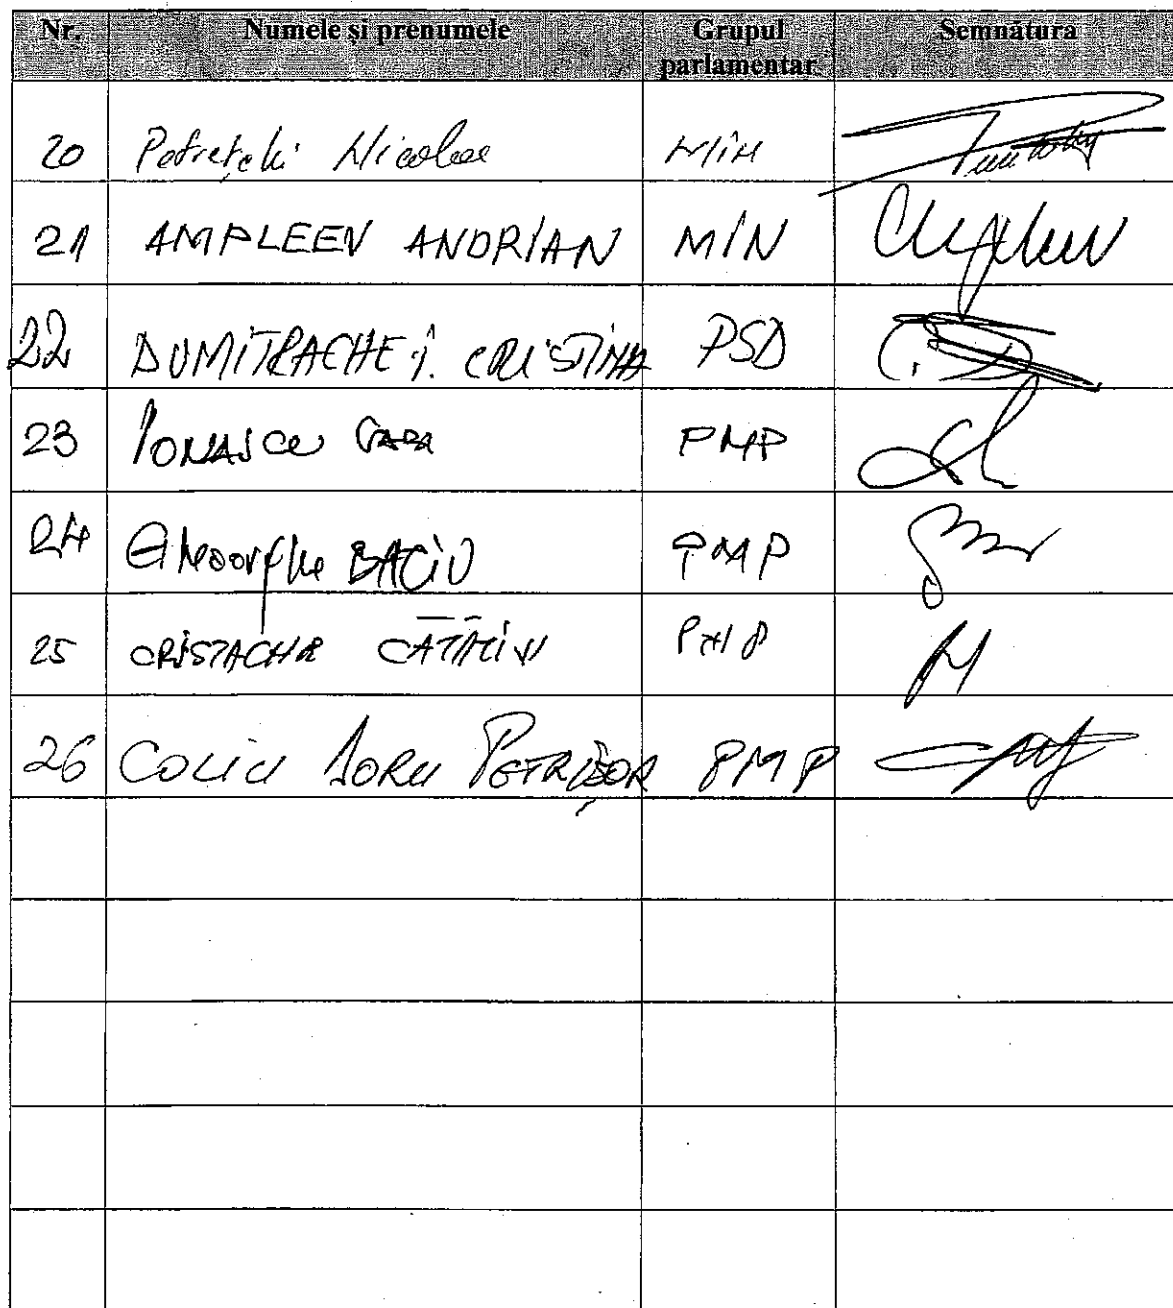 Nr. Numele și prenumele Grupul parlamentar Semnătura
20 Petrețchi Nicolae MIN
21 AMPLEEV ANDRIAN MIN
22 DUMITRACHE I. CRISTINA PSD
23 IONAȘCU PMP
24 Gheorghe BACIU PMP
25 CRISTACHE CĂTĂLIN PMP
26 COLIU DORU PETRIȘOR PMP